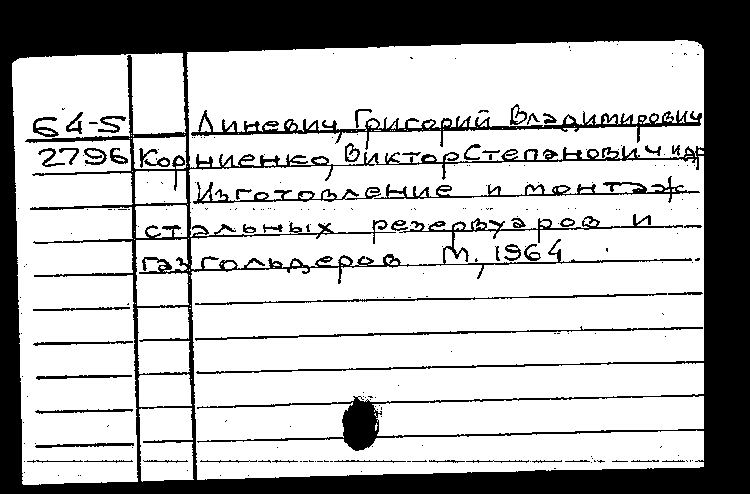 64-5 Линевич, Григорий Владимирович
2796 Корниенко, Виктор Степанович и др
Изготовление и монтаж
стальных резервуаров и
газгольдеров М., 1964.